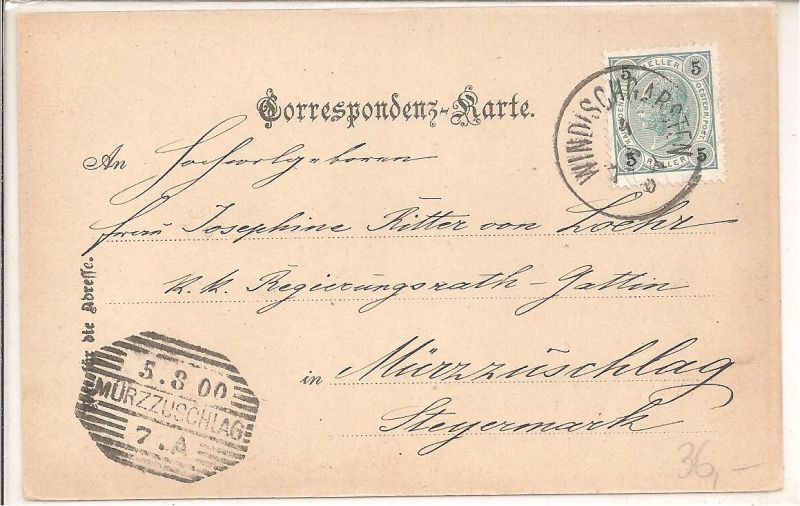 Correspondenz-Karte.
5 HELLER 5
OESTERR. POST
5 HELLER 5
WINDISCHGARSTEN
An Hochwolgeboren
Frau Josephine Ritter von Loehr
k. k. Regierungsrath-Gattin
in Mürzzuschlag
Steyermark
für die Adresse.
5.8 00
MÜRZZUSCHLAG
7.A
36,-